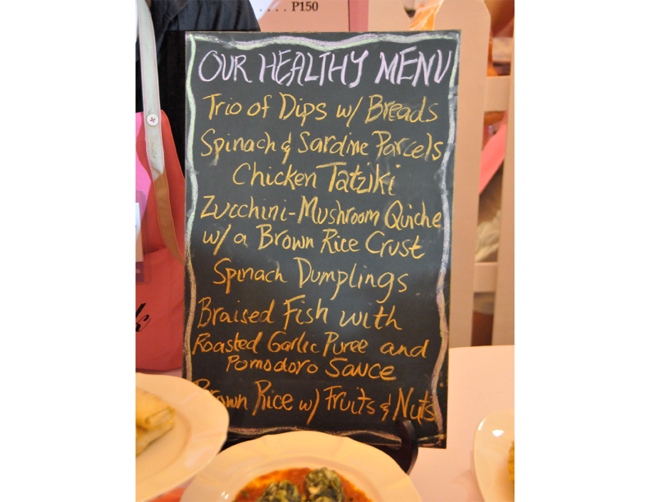 . . . . P150
OUR HEALTHY MENU
Trio of Dips w/ Breads
Spinach & Sardine Parcels
Chicken Tatziki
Zucchini-Mushroom Quiche
w/ a Brown Rice Crust
Spinach Dumplings
Braised Fish with
Roasted Garlic Puree and
Pomodoro Sauce
Brown Rice w/ Fruits & Nuts